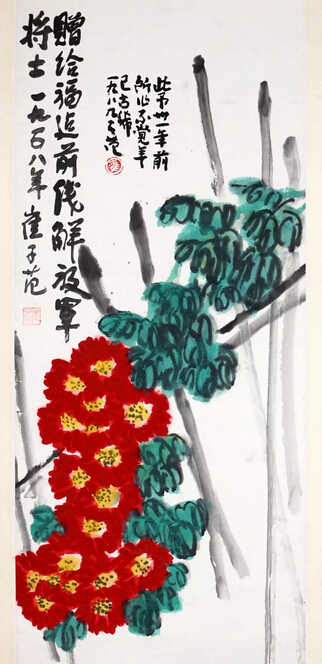 赠给福建前线解放军
将士 一九五八年 崔子范
此卅一年前
所作不觉年
已古稀
一九八九子范